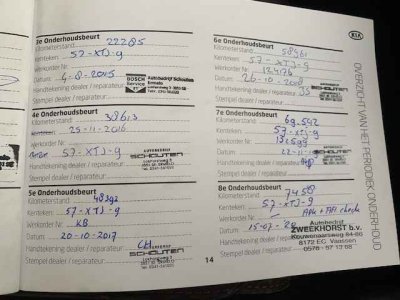 3e Onderhoudsbeurt
Kilometerstand: 22285
Kenteken: 57-XTJ-9
Werkorder Nr.:
Datum: 4-8-2015
Handtekening dealer / reparateur:
Stempel dealer / reparateur:
BOSCH Service
Autobedrijf Schouten
Ermelo
4e Onderhoudsbeurt
Kilometerstand: 38613
Kenteken: 25-11-2016
57-XTJ-9
Handtekening dealer / reparateur:
Stempel dealer / reparateur:
AUTOBEDRIJF
SCHOUTEN
5e Onderhoudsbeurt
Kilometerstand: 48392
Kenteken: 57-XTJ-9
Werkorder Nr.: KB
Datum: 20-10-2017
Handtekening dealer / reparateur:
Stempel dealer / reparateur:
SCHOUTEN
6e Onderhoudsbeurt
Kilometerstand: 58961
Kenteken: 57-XTJ-9
Werkorder Nr.: 12476
Datum: 26-10-2018
Handtekening dealer / reparateur:
Stempel dealer / reparateur:
SCHOUTEN
7e Onderhoudsbeurt
Kilometerstand: 69.542
Kenteken: 57-XTJ-9
Werkorder Nr.:
Datum:
Handtekening dealer / reparateur:
Stempel dealer / reparateur:
SCHOUTEN
8e Onderhoudsbeurt
Kilometerstand: 7458
Kenteken: 57-XTJ-9
Werkorder Nr.: APK + check
Datum: 15-07-
Handtekening dealer / reparateur:
Stempel dealer / reparateur:
Autobedrijf
ZWEEKHORST b.v.
Kouwenaarsweg 84-86
8172 EC Vaassen
0578 - 57 13 68
14
KIA
OVERZICHT VAN HET PERIODIEK ONDERHOUD